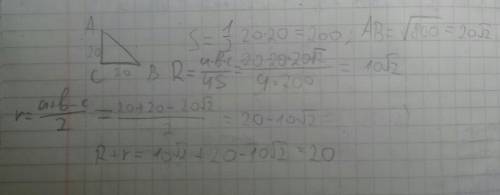 A
20
C 20 B
S = 1/2 20·20 = 200, AB = √800 = 20√2,
R = a·b·c/4S = 20·20·20√2/4·200 = 10√2
r = a+b-c/2 = 20+20-20√2/2 = 20-10√2
R+r = 10√2+20-10√2 = 20